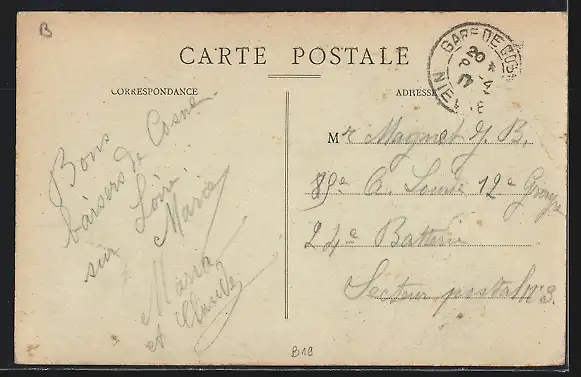 B
CARTE POSTALE
CORRESPONDANCE
ADRESSE
GARE DE COS
20
4
NIEV
Bons
baisers de Cosne
sur Loire
Marie
Maria
et Claude
Mr Magnet J. B.
89e A. Lourde 12e Groupe
24e Batterie
Secteur postal n°3.
B19